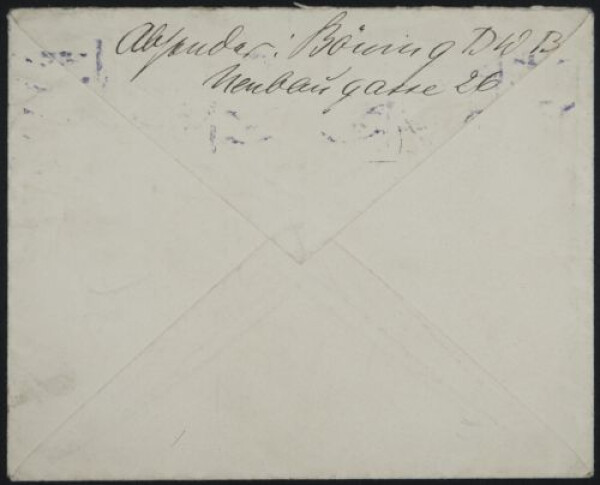 Absender: Böning DWB
Neubaugasse 26